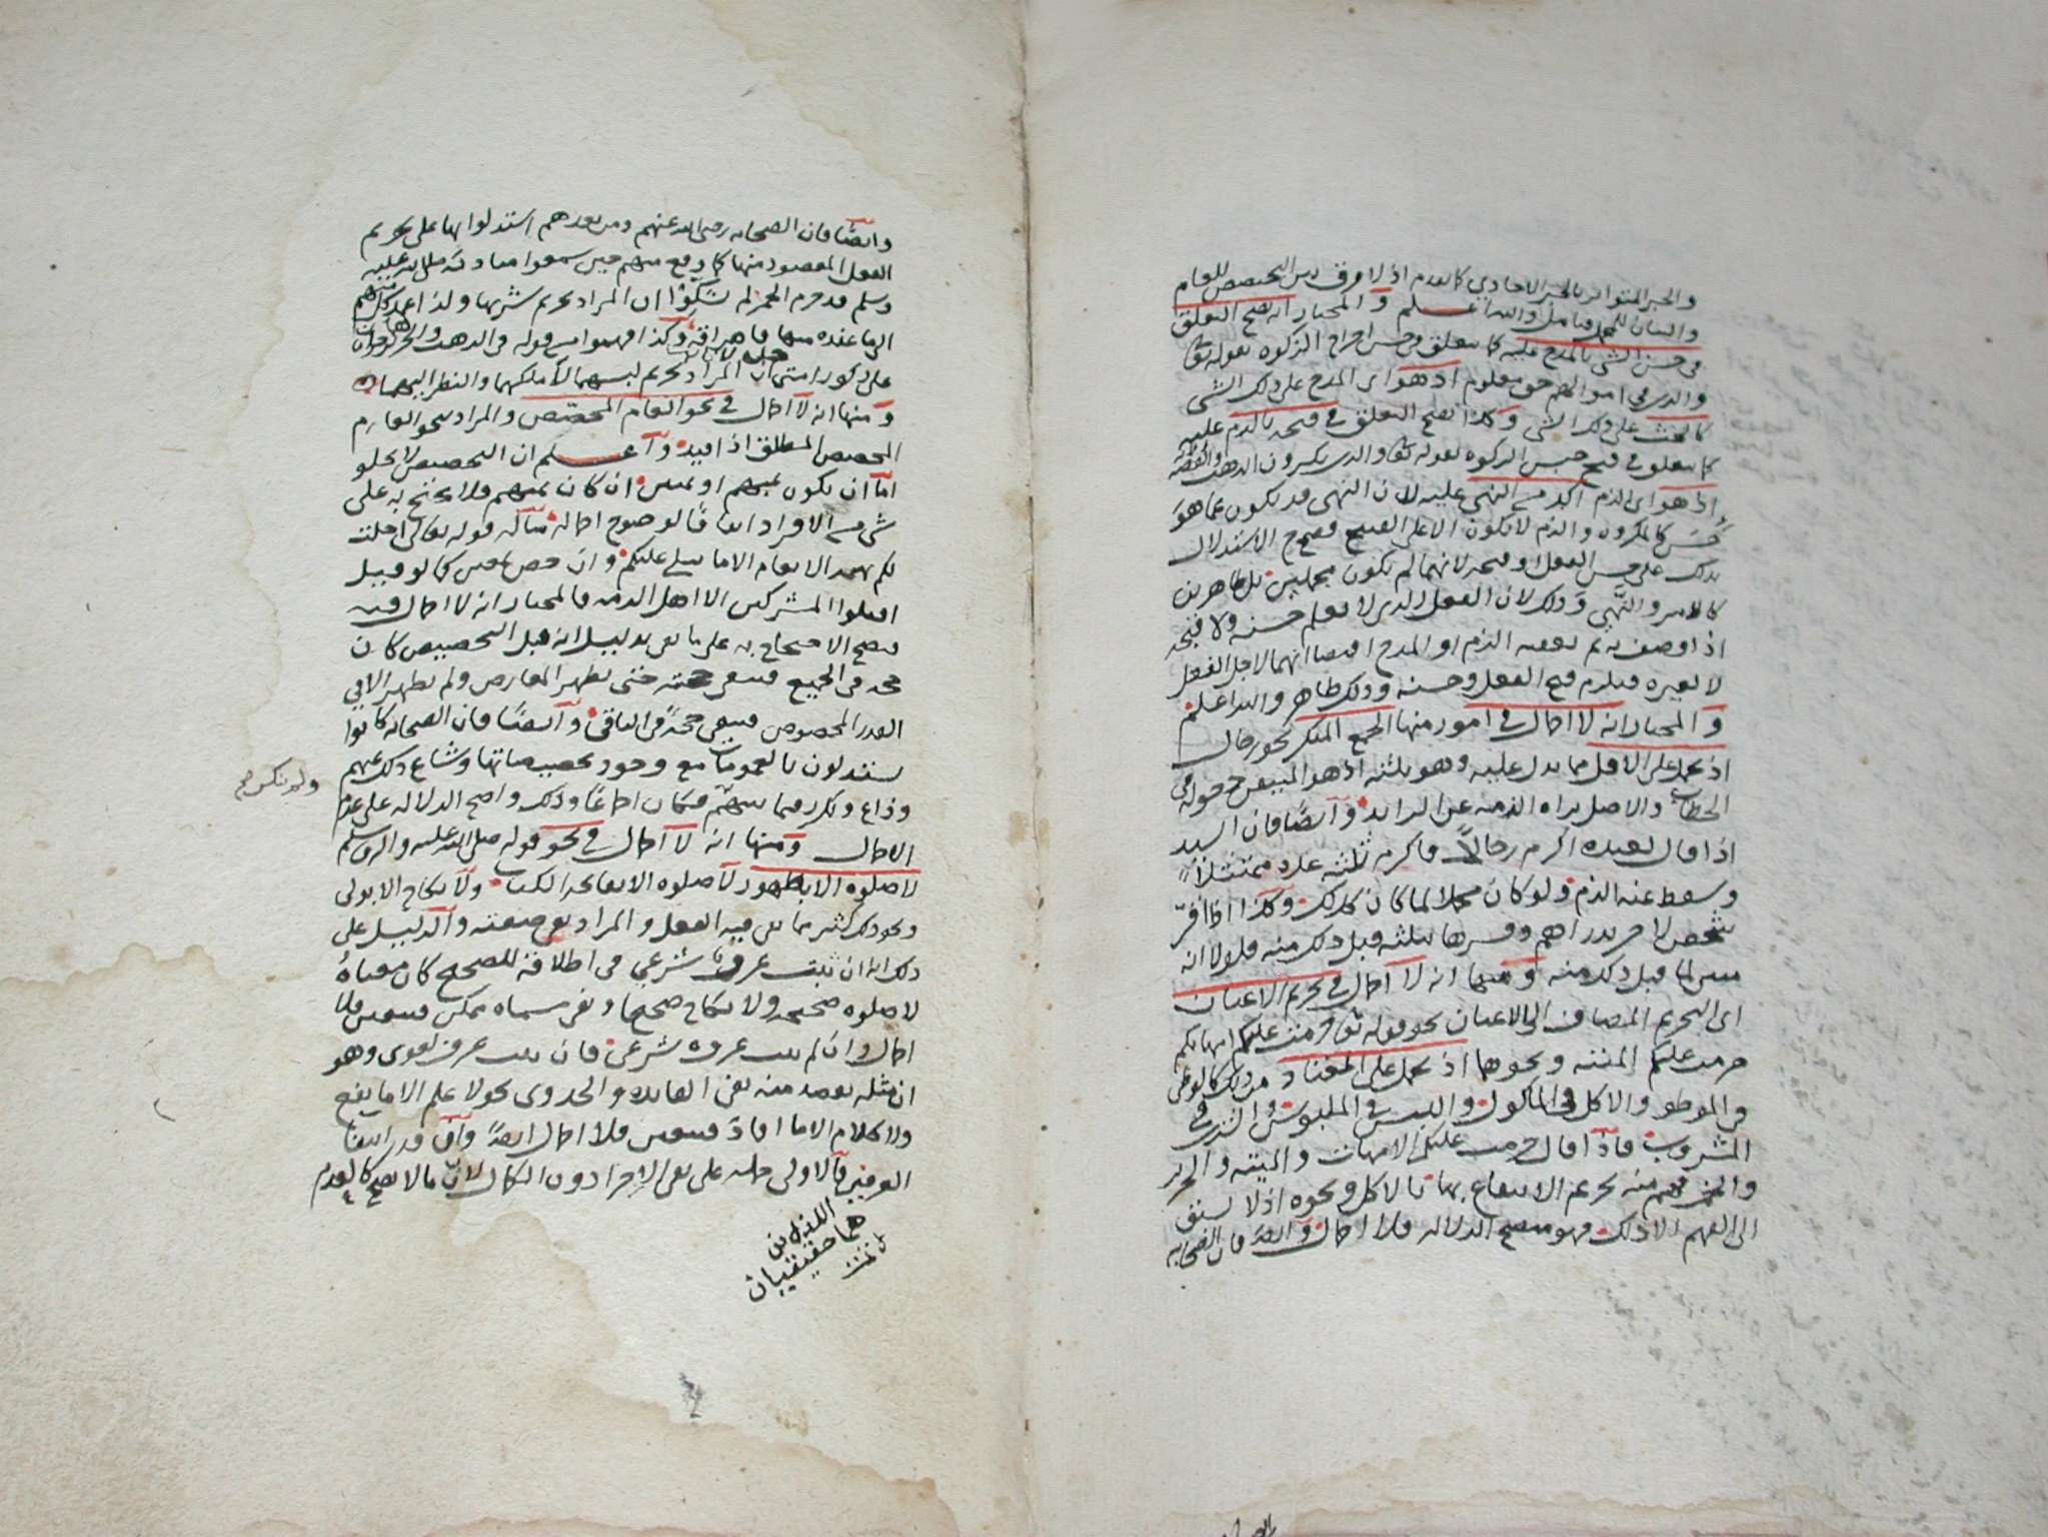 والخبر المتواتر بالخبر الاحادي كما تقدم اذ لا فرق بين التخصيص للعام
والبيان للمجمل فتامل والله اعلم و المختار انه يصح التعلق
في حسن الشي بالمدح عليه كما يتعلق في حسن اخراج الزكوه بقوله تعالى
والذين في اموالهم حق معلوم اذ هو اي المدح على ذلك الشي
كالحث على ذلك الشي وكذا يصح التعلق في قبحه بالذم عليه
كما يتعلق في قبح حبس الزكوه بقوله تعالى والذين يكنزون الذهب والفضه
اذ هو اي الذم اكد من النهي عليه لان النهي قد يكون عما هو
حسن كالمكروه والذم لا يكون الا على القبيح فصح الاستدلال
بذلك على حسن الفعل او قبحه لانهما لم يكونا مجملين بل ظاهرين
كالامر والنهي وذلك لان الفعل الذي لا نعلم حسنه ولا قبحه
اذا وصف به ثم تعقبه الذم او المدح اقتضا انهما لاجل الفعل
لا لغيره فيلزم قبح الفعل وحسنه وذلك ظاهر والله اعلم
و المختار انه لا اجمال في امور منها الجمع المنكر نحو رجال
اذ يحمل على الاقل مما يدل عليه وهو ثلثه اذ هو المتيقن دخوله في
الخطاب والاصل براه الذمه عن الزايد وايضا فان السيد
اذا قال لعبده اكرم رجالا فاكرم ثلثه عد ممتثلا
وسقط عنه الذم ولو كان مجملا لما كان كذلك وكذا اذا اقر
شخص لاخر بدراهم وفسرها بثلثه قبل ذلك منه فلولا انه
مبين لما قبل ذلك منه و منها انه لا اجمال في تحريم الاعيان
اي التحريم المضاف الى الاعيان نحو قوله تعالى حرمت عليكم امهاتكم
حرمت عليكم الميته ونحوها اذ يحمل على المعتاد من ذلك كالوطي
في الموطو والاكل في الماكول واللبس في الملبوس والشرب في
المشروب فاذا قال حرمت عليكم الامهات والميته والحرير
والخمر فهم منه تحريم الانتفاع بها بالاكل ونحوه اذ لا يسبق
الى الفهم الا ذلك فهو متضح الدلاله فلا اجمال وايضا فان الصحابه
وايضا فان الصحابه رضي الله عنهم ومن بعدهم استدلوا بها على تحريم
الفعل المقصود منها كما وقع منهم حين سمعوا مناديه صلى الله عليه
وسلم قد حرم الخمر لم يشكوا ان المراد تحريم شربها ولذا عمد كل منهم
الى ما عنده منها فاهراقه وكذا فهموا من قوله في الذهب والحرير هذان حرامان
على ذكور امتي حل لاناثها ان المراد تحريم لبسهما لا ملكهما والنظر اليهما
و منها انه لا اجمال في نحو العام المخصص والمراد بنحو العام
المخصص المطلق اذا قيد واعلم ان التخصيص لا يخلو
اما ان يكون بمبهم او بمبين ان كان بمبهم فلا يحتج به على
شي من الافراد اتفاقا لوضوح اجماله مثاله قوله تعالى احلت
لكم بهيمه الانعام الا ما يتلى عليكم وان خص بمبين كما لو قيل
اقتلوا المشركين الا اهل الذمه فالمختار انه لا اجمال فيه
فيصح الاحتجاج به على ما بقي بدليل انه قبل التخصيص كان
حجه في الجميع فيبقى حجته حتى يظهر المعارض ولم يظهر الا في
القدر المخصوص فيبقى حجه في الباقي وايضا فان الصحابه كانوا
يستدلون بالعمومات مع وجود تخصيصاتها وشاع ذلك عنهم
وذاع وتكرر فيما بينهم فكان اجماعا وذلك واضح الدلاله على عدم
ولم ينكر
الاجمال ومنها انه لا اجمال في نحو قوله صلى الله عليه واله وسلم
لا صلوه الا بطهور لا صلوه الا بفاتحه الكتاب ولا نكاح الا بولي
ونحو ذلك كثير مما نفي فيه الفعل والمراد نفي صفته والدليل على
ذلك انه ان ثبت عرف شرعي في اطلاقه للصحيح كان معناه
لا صلوه صحيحه ولا نكاح صحيحا ونفي مسماه ممكن فتعين فلا
اجمال وان لم يثبت عرف شرعي فان ثبت عرف لغوي وهو
ان مثله يقصد منه نفي الفايده والجدوى نحو لا علم الا ما نفع
ولا كلام الا ما افاد فتعين فلا اجمال ايضا وان قدر انتفا
العرفين فالاولى حمله على نفي الاجزا دون الكمال لان ما لا يصح كالعدم
اللذين
هما حقيقيان